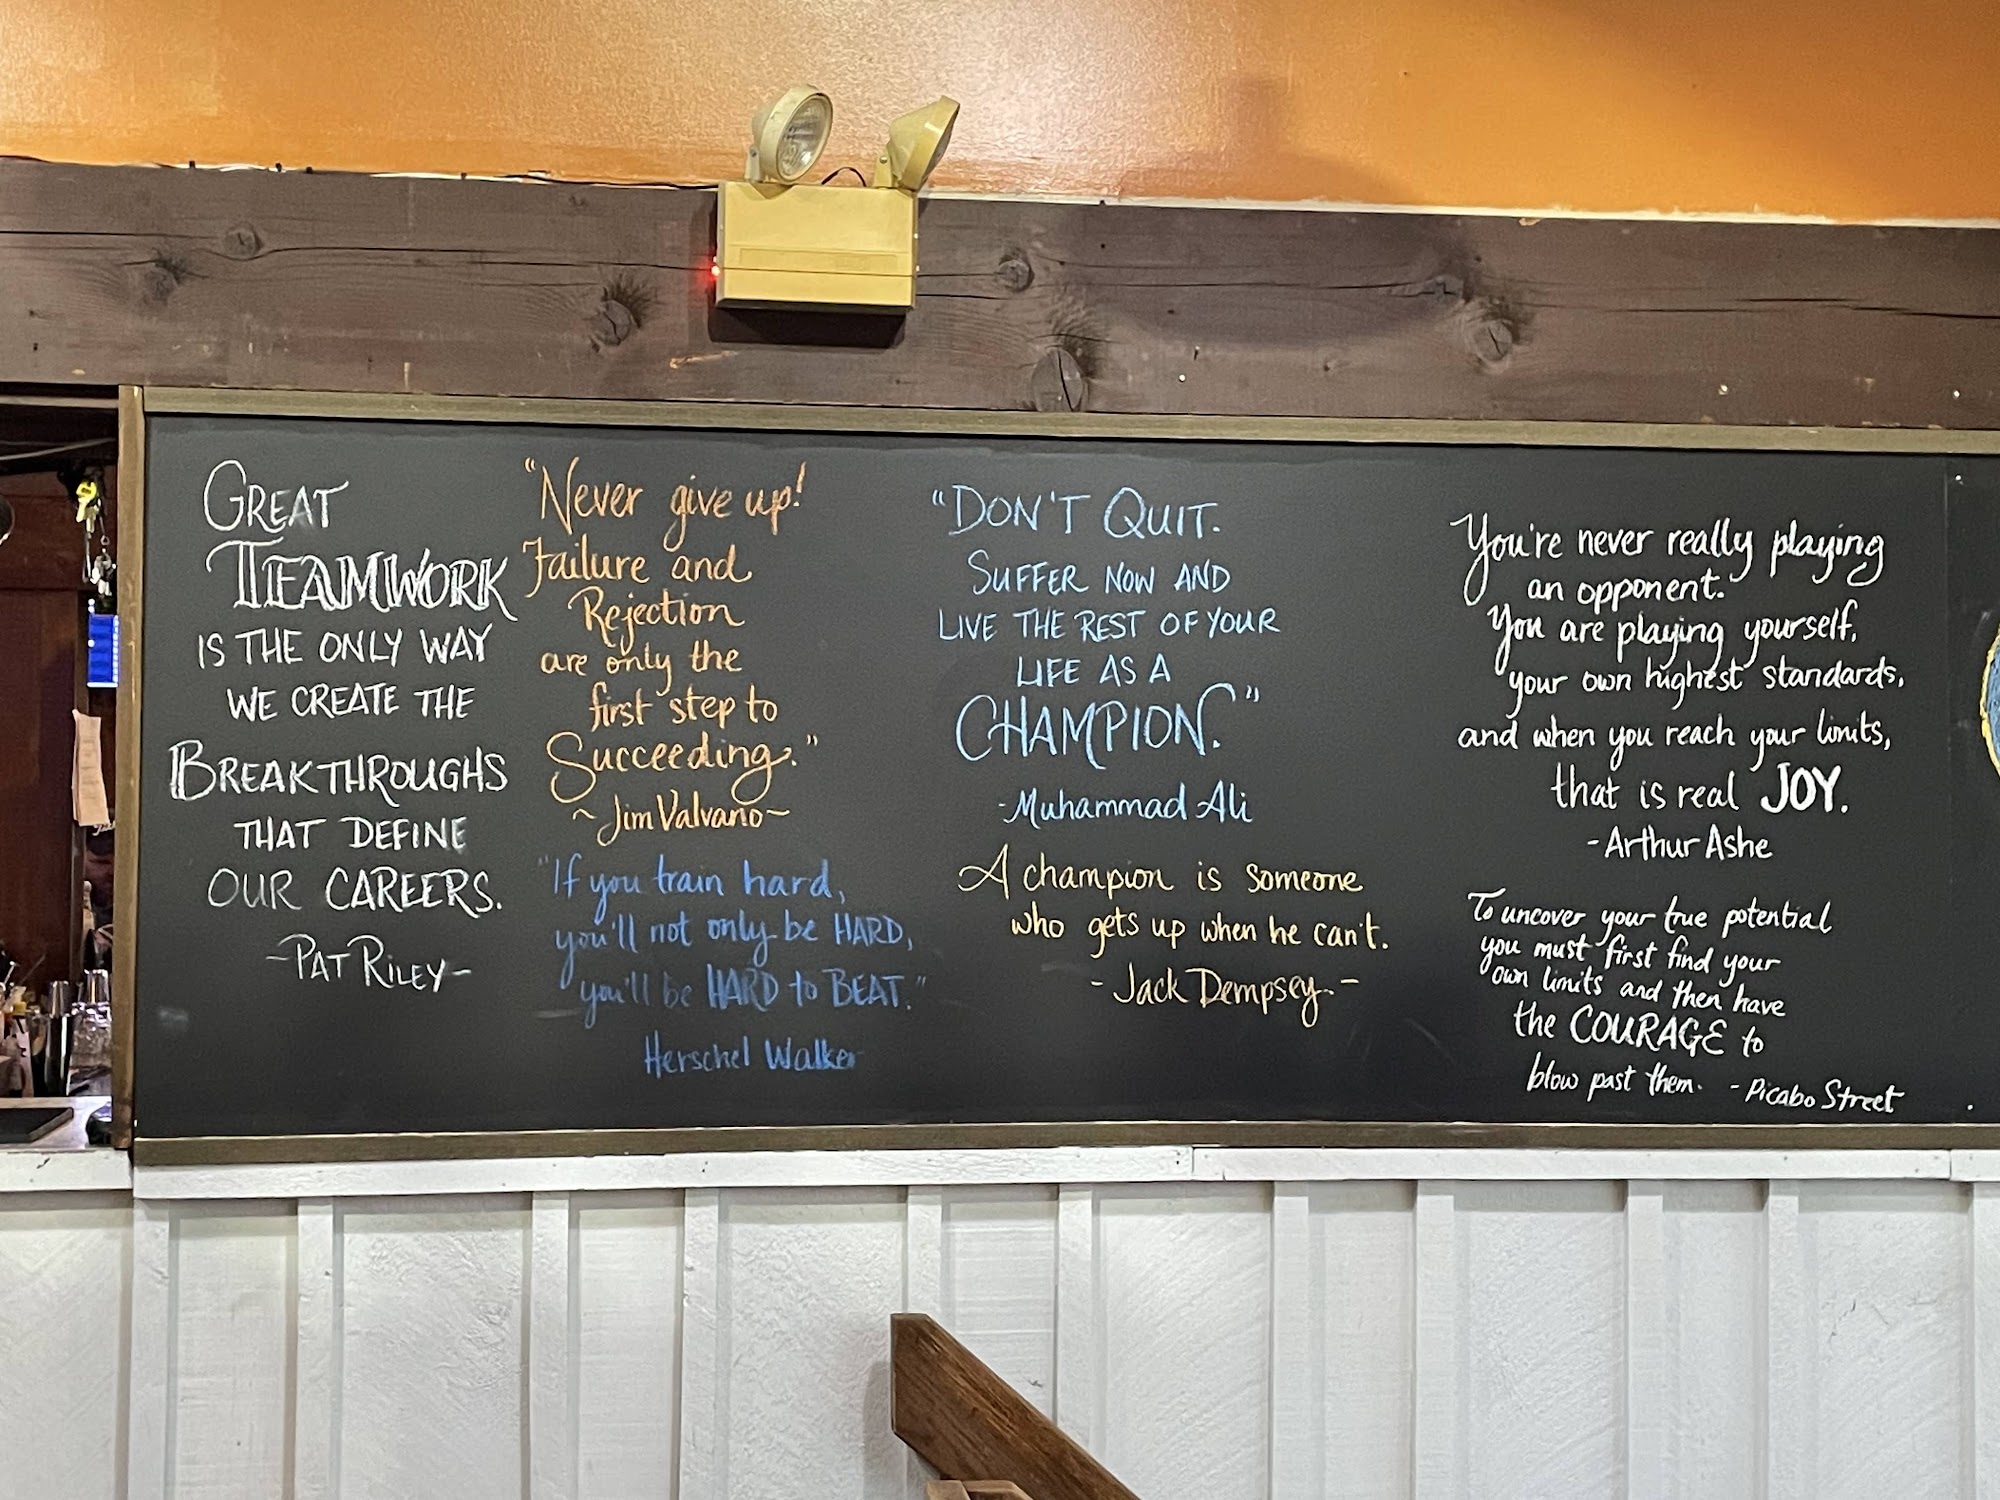 GREAT
TEAMWORK
IS THE ONLY WAY
WE CREATE THE
BREAKTHROUGHS
THAT DEFINE
OUR CAREERS.
~PAT RILEY~
"Never give up!
Failure and
Rejection
are only the
first step to
Succeeding."
~Jim Valvano~
"If you train hard,
you'll not only be HARD,
you'll be HARD to BEAT."
Herschel Walker
"DON'T QUIT.
SUFFER NOW AND
LIVE THE REST OF YOUR
LIFE AS A
CHAMPION."
-Muhammad Ali
A champion is someone
who gets up when he can't.
- Jack Dempsey. -
You're never really playing
an opponent.
You are playing yourself,
your own highest standards,
and when you reach your limits,
that is real JOY.
- Arthur Ashe
To uncover your true potential
you must first find your
own limits and then have
the COURAGE to
blow past them. - Picabo Street